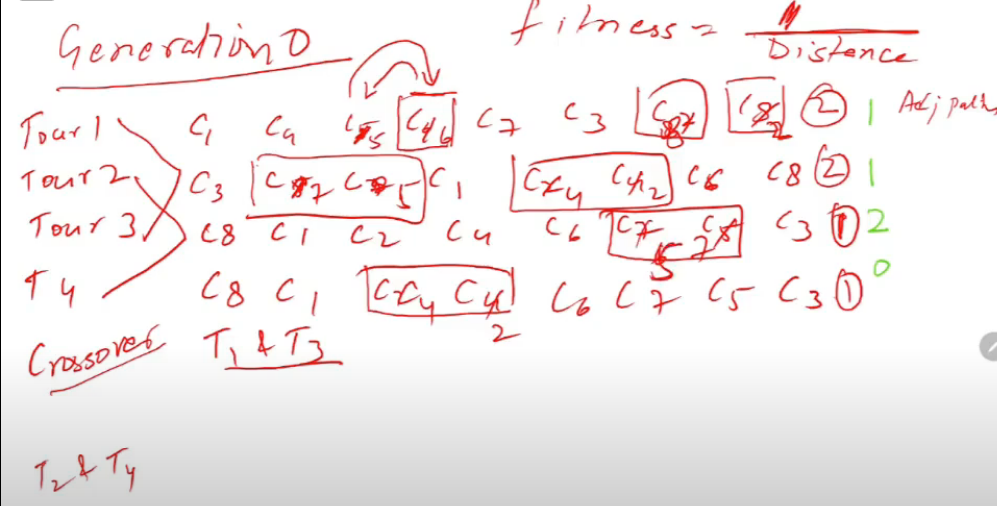 Generation 0
fitness = 1 / Distance
Tour 1 C1 C4 C5 C6 C7 C3 C8 C2 2 1 Adj paths
Tour 2 C3 C7 C5 C1 C4 C2 C6 C8 2 1
Tour 3 C8 C1 C2 C4 C6 C5 C7 C3 1 2
T4 C8 C1 C4 C2 C6 C7 C5 C3 1 0
Crossover T1 & T3
T2 & T4